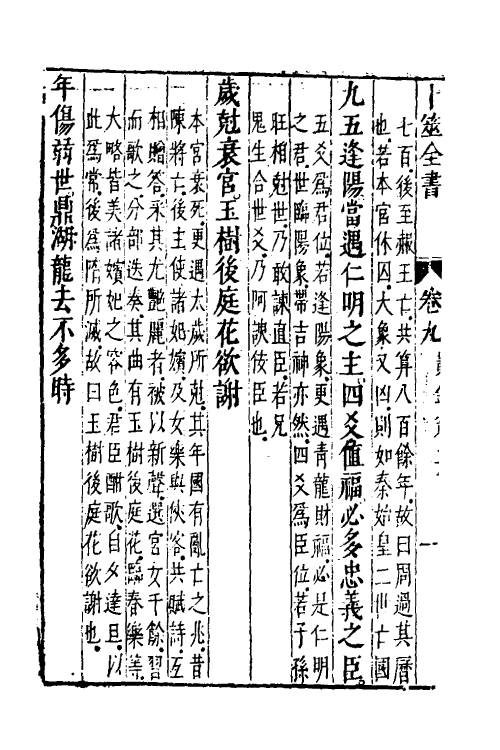 卜筮全書
卷九
一
七百後至赧王亡共算八百餘年故曰周過其曆
也若本官休囚大象又凶則如秦始皇二世亡國
九五逢陽當遇仁明之主四爻值福必多忠義之臣
五爻爲君位若逢陽象更遇青龍財福必是仁明
之君世臨陽象帶吉神亦然四爻爲臣位若子孫
旺相尅世乃敢諫直臣若兄
鬼生合世爻乃阿諛佞臣也
歲尅衰官玉樹後庭花欲謝
本宮衰死更遇太歲所尅其年國有亂亡之兆昔
陳將亡後主使諸妃嬪及女樂與俠客共賦詩互
相贈答采其尤艷麗者被以新聲選宮女千餘習
而歌之分部迭奏其曲有玉樹後庭花臨春樂等
大略皆美諸嬪妃之容色君臣酣歌自夕達旦以
此爲常後爲隋所滅故曰玉樹後庭花欲謝也
年傷弱世鼎湖龍去不多時